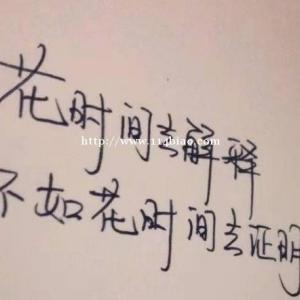 花时间去解释
http://www.11abiao.com
不如花时间去证明